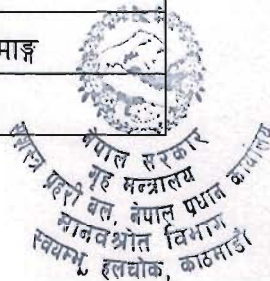 माङ्ग
नेपाल सरकार
गृह मन्त्रालय
सशस्त्र प्रहरी बल, नेपाल प्रधान कार्यालय
मानवश्रोत विभाग
स्वयम्भू, हलचोक, काठमाडौं